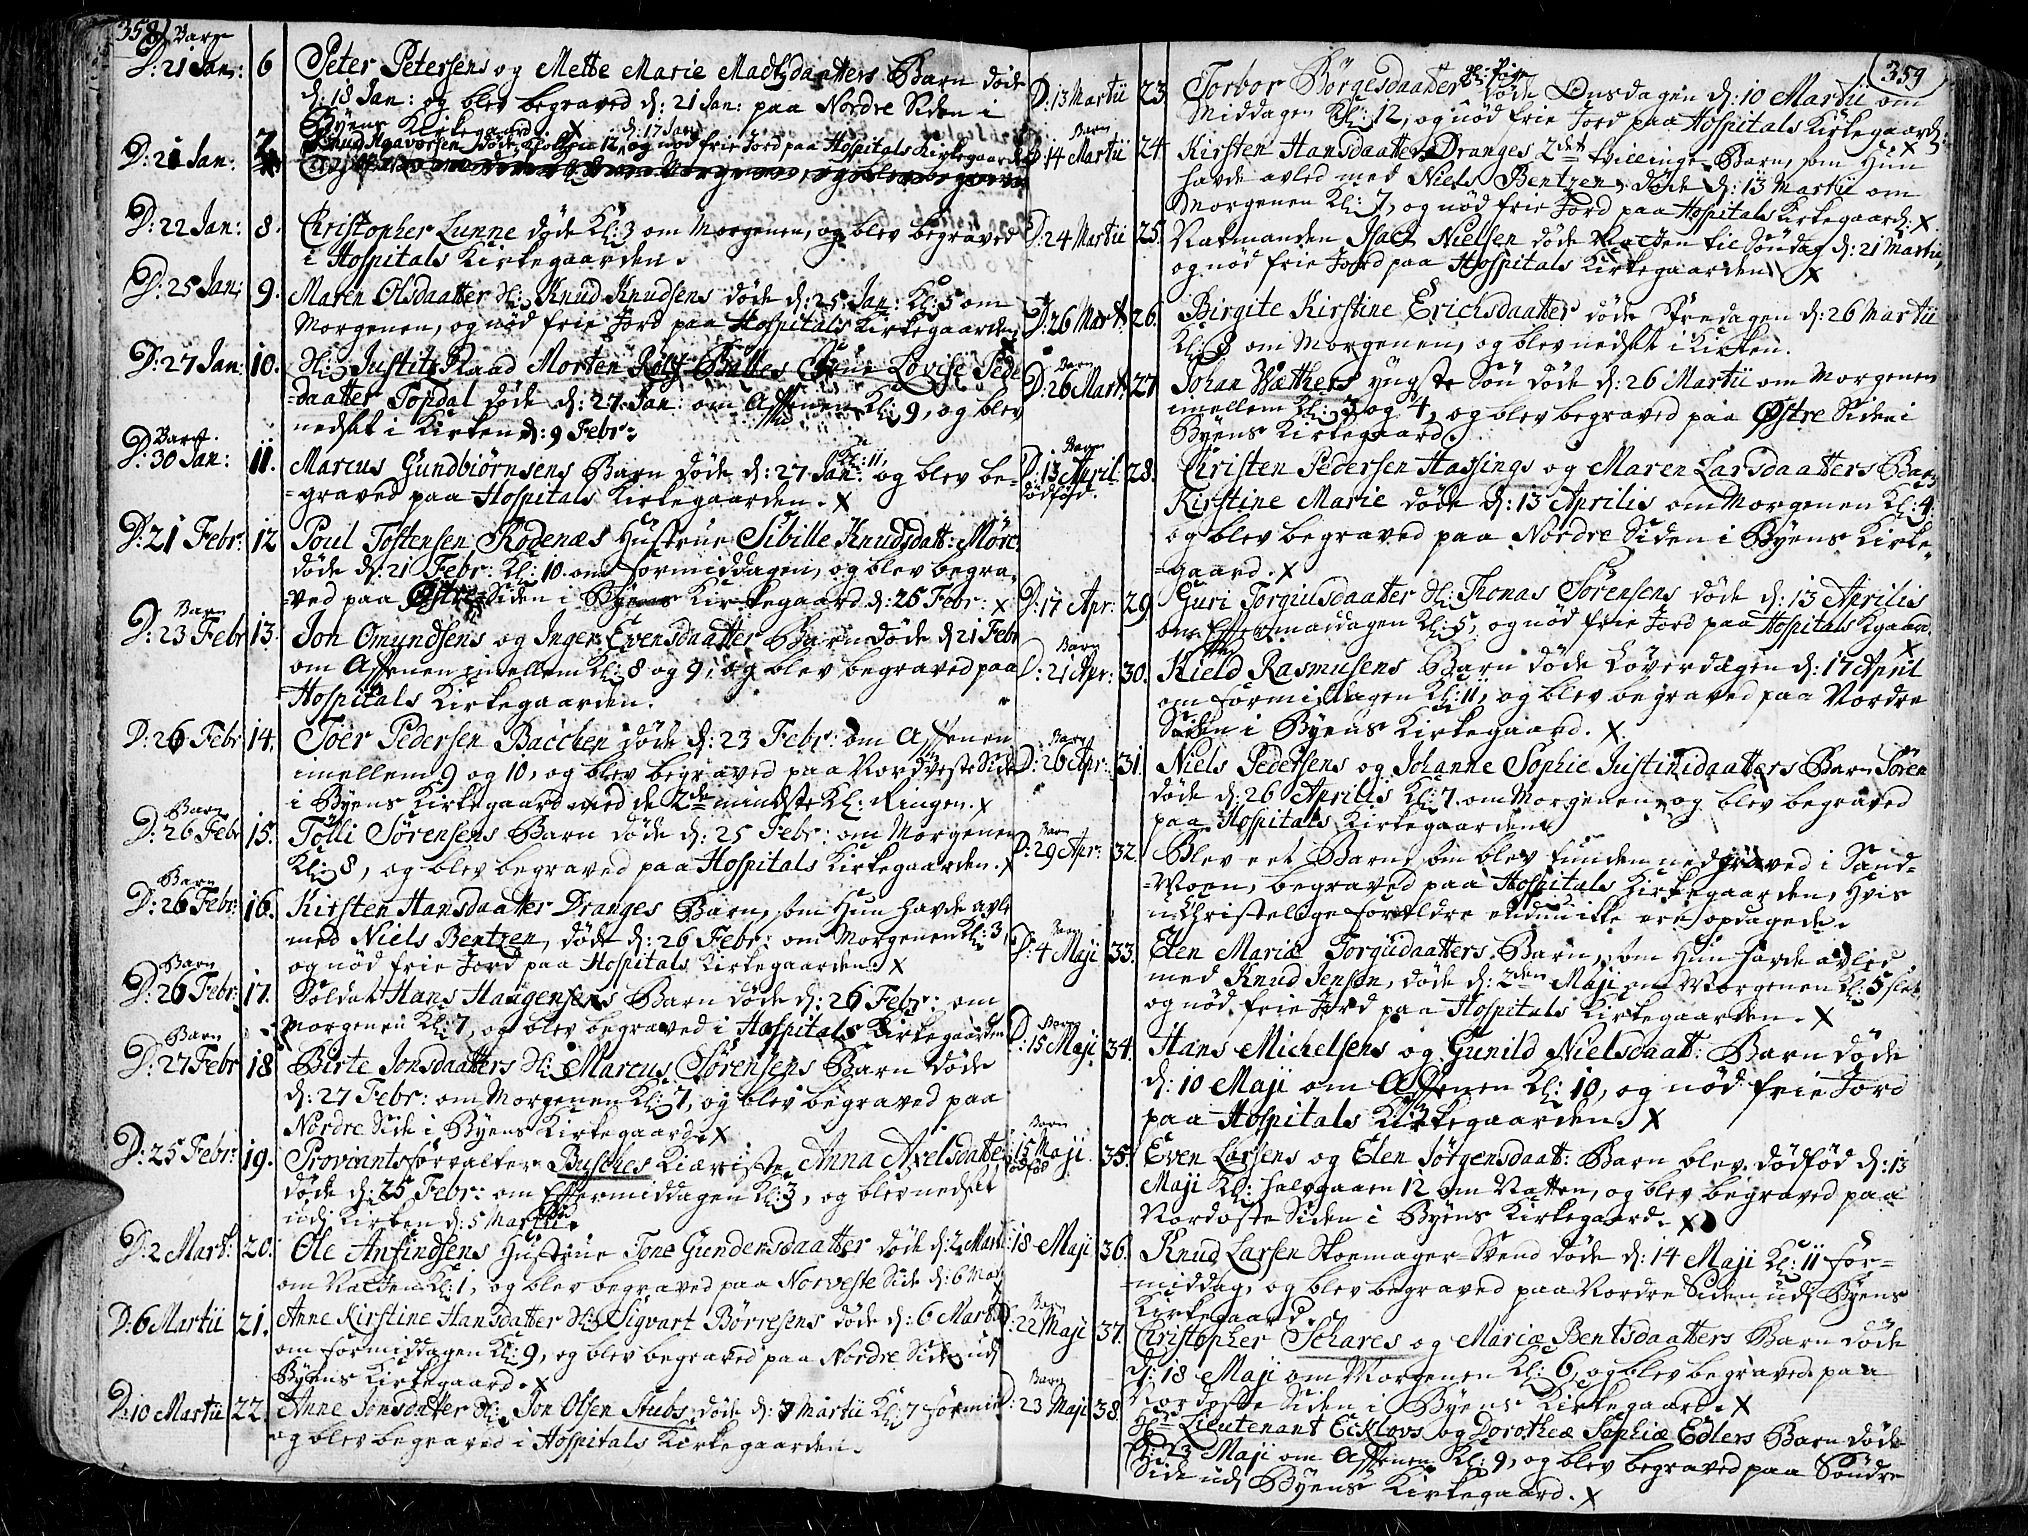 358
Barn
D: 21 Jan: 6 Peter Petersens og Mette Marie Madtzdaatters Barn døde
d: 18 Jan: og blev begraved d: 21 Jan: paa Nordre Siden i
Byens Kirkegaard. X
D: 21 Jan: 7. Knud Aavorsen døde d: 17 Jan Klokken 12, og nød frie Jord paa Hospitals Kirkegaarden
D: 22 Jan: 8. Christopher Lunne døde Kl: 3 om Morgenen, og blev begraved
i Hospitals Kirkegaarden.
D: 25 Jan: 9. Maren Olsdaatter Hl: Knud Knudsens døde d: 25 Jan: Kl: 5 om
Morgenen, og nød frie Jord paa Hospitals Kirkegaarden
D: 27 Jan: 10. Hl: Justitz Raad Morten Lovise Pede
=daatter Topdal døde d: 27 Jan: om Afftenen Kl: 9, og blev
nedsat i Kirken d: 9 Febr:
Barn
D: 30 Jan: 11. Marcus Gundbiørnsens Barn døde d: 27 Jan: Kl: 11, og blev be=
=graved paa Hospitals Kirkegaarden. X
D: 21 Febr: 12 Poul Toftensen Rødenæs Hustrue Sibille Knudsdatt: Mørc
døde d: 21 Febr: Kl: 10 om Formiddagen, og blev begra=
=ved paa Østre Siden i Byens Kirkegaard d: 25 Febr: X
Barn
D: 23 Febr 13. Jon Omundsens og Inger Evensdaatter Barn døde d: 21 Febr
om Afftenen imellem Kl: 8 og 9, og blev begraved paa
Hospitals Kirkegaarden.
D: 26 Febr 14. Toer Pedersen Bacchen døde d: 23 Febr: om Afftenen
imellem 9 og 10, og blev begraved paa Nordveste Side
i Byens Kirkegaard med de 2de mindste Kl: Ringen. X
Barn
D: 26 Febr 15. Tølli Sørensens Barn døde d: 25 Febr: om Morgenen
Kl: 8, og blev begraved paa Hospitals Kirkegaarden. X
Barn
D: 26 Febr: 16. Kirsten Hansdaatter Dranges Barn, som Hun havde avlt
med Niels Bentzen, døde d: 26 Febr: om Morgenen Kl: 3,
og nød frie Jord paa Hospitals Kirkegaarden. X
Barn
D: 26 Febr: 17. Soldat Hans Haagensens Barn døde d: 26 Febr: om
Morgenen Kl: 7, og blev begraved i Hospitals Kirkegaarden
Barn
D: 27 Febr 18 Birte Jonsdaatters Hl: Marcus Sørensens Barn døde
d: 27 Febr: om Morgenen Kl: 7, og blev begraved paa
Nordre Side i Byens Kirkegaard. X
D: 25 Febr: 19. Proviantsforvalter Busches Kiæreste Anna Axelsdatter
døde d: 25 Febr: om Effttermiddagen Kl: 3, og blev nedsat
udi Kirken d: 5 Martii.
D: 2 Mart: 20. Ole Ansindsens Hustrue Tone Gundersdaatter døde d: 2 Mart
om Natten Kl: 1, og blev begraved paa Norveste Side d: 6 Mart
D: 6 Martii 21. Anne Kirstine Hansdatter Hl: Sigvart Børresens døde d: 6 Mart
om Formiddagen Kl: 9, og blev begraved paa Nordre Side udi
Byens Kirkegaard. X
D: 10 Martii 22. Anne Jonsdatter Hl: Jon Olsen Stubs døde d: 7 Martii Kl: 7 Formid
og blev begraved i Hospitals Kirkegaarden.
359
D: 13 Martii 23. Torbor Børgesdaatter døde Onsdagen d: 10 Martii om
Middagen Kl: 12, og nød frie Jord paa Hospitals Kirkegaard: X
Barn
D: 14 Martii 24. Kirsten Hansdaatter Dranges 2det tvillinge Barn, som Hun
havde avled med Niels Bentzen, døde d: 13 Martii om
Morgenen Kl: 7, og nød frie Jord paa Hospitals Kirkegaard. X
D: 24 Martii 25. Natmanden Isach Nielsen døde Natten til Søndag d: 21 Martii,
og nød frie Jord paa Hospitals Kirkegaarden X
D: 26 Mart: 26. Birgite Kirstine Erichsdaatter døde d: 26 Martii
Kl: 8 om Morgenen, og blev nedsat i Kirken.
Barn
D: 26 Mart: 27 Johan Wæthers yngste Søn døde d: 26 Martii om Morgenen
imellem Kl: 3 og 4, og blev begraved paa Østre Siden i
Byens Kirkegaard.
Barn
D: 13 April 28. Christen Pedersen Hassings og Maren Larsdaatters Barn
dødfød. Kirstine Marie døde d: 13 Aprilis om Morgenen Kl: 4
og blev begraved paa Nordre Siden i Byens Kirke=
=gaard. X
D: 17 Apr: 29. Guri Torgilsdaatter Hl: Thomas Sørensens døde d: 13 Aprilis
om Efftermiddagen Kl: 5, og nød frie Jord paa Hospitals Kgaard. X
Barn
D: 21 Apr: 30. Kield Rasmusens Barn døde Løverdagen d: 17 April
om Formiddagen Kl: 11, og blev begraved paa Nordre
Siden i Byens Kirkegaard. X
Barn
D: 26 Apr: 31. Niels Pedersens og Johanne Sophie Justinidaatters Barn Søren
døde d: 26 Aprilis Kl: 7 om Morgenen, og blev begraved
paa Hospitals Kirkegaarden
Barn
D: 29 Apr: 32. Blev eet Barn, som blev funden nedgraved i Sand=
=Moen, begraved paa Hospitals Kirkegaarden, hvis
uChristelige Forældre endnu ikke ere opdagede.
Barn
D: 4 Maji 33. Elen Mariæ Torgiidaatters Barn, som Hun havde avled
med Knud Jensen, døde d: 2den Maji om Morgenen Kl: 5 slet
og nød frie Jord paa Hospitals Kirkegaarden. X
Barn
D: 15 Maji 34. Hans Michelsens og Gunild Nielsdaatt: Barn døde
d: 10 Maji om Afftenen Kl: 10, og nød frie Jord
paa Hospitals Kirkegaarden. X
Barn
15 Maji 35. Even Larsens og Elen Jørgensdaat: Barn blev dødfød d: 13
dødfød Maji Kl: halvgaaen 12 om Natten, og blev begraved paa
Nordoste Siden i Byens Kirkegaard. X
18 Maji 36. Knud Larsen Skoemager=Svend døde d: 14 Maji Kl: 11 For=
=middag, og blev begraved paa Nordre Siden udi Byens
Kirkegaard.
Barn
D: 22 Maji 37. Christopher Schares og Mariæ Bentsdaatters Barn døde
d: 18 Maji om Morgenen Kl: 6, og blev begraved paa
Nordoste Siden i Byens Kirkegaard. X
Barn
D: 23 Maji 38. Hr: Lieutenant Ecklovs og Dorotheæ Sophiæ Edlers Barn døde
d: 23 Maji om Afftenen Kl: 9, og blev begraved paa Søndre
Side udi Byens Kirkegaard. X